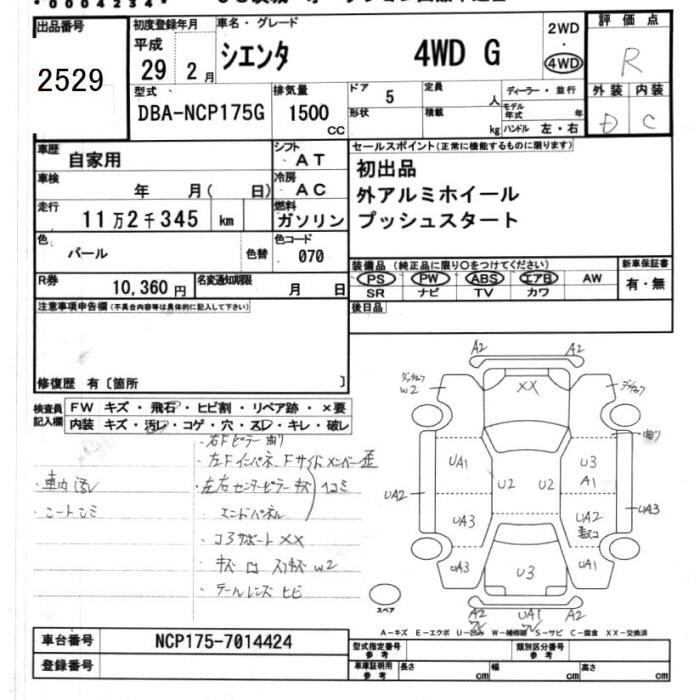 *0004234*
出品番号
2529
初度登録年月
平成
29 2月
車名・グレード
シエンタ 4WD G
2WD
・
4WD
評価点
R
外装 内装
D C
型式
DBA-NCP175G
排気量
1500
CC
ドア 5
形状
定員 人
積載 kg
ディーラー・並行
モデル年式 年
ハンドル 左・右
車歴
自家用
シフト
AT
車検
年 月( 日)
冷房
AC
走行
11万2千345 km
燃料
ガソリン
色
パール
色替
色コード
070
R券
10,360円
名変通知期限
月 日
セールスポイント(正常に機能するものに限ります)
初出品
外アルミホイール
プッシュスタート
装備品(純正品に限り○をつけてください)
PS PW ABS エアB AW
SR ナビ TV カワ
新車保証書
有・無
後日品
注意事項申告欄(不具合内容等は具体的に記入して下さい)
修復歴 有〔箇所 〕
検査員記入欄
FW キズ・飛石・ヒビ割・リペア跡・×要
内装 キズ・汚レ・コゲ・穴・スレ・キレ・破レ
・右Fピラー曲り
・左Fインパネ Fサイドメンバー歪
・車内汚レ
・左右センターピラーキズ ヘコミ
・シートシミ
・エンドパネル
・コアサポートXX
・キズ ロ スリキズ W2
・テールレンズヒビ
A2 A2
W2
XX
曲り
UA1
U3
A1
U2 U2
UA2
UA3
UA3
UA2
UA3
U3
UA1
スペア
A2 UA1 A2
A-キズ E-エクボ U-凹み W-補修跡 S-サビ C-腐食 XX-交換済
車台番号
NCP175-7014424
登録番号
型式指定番号
参考
類別区分番号
参考
車庫証明用
参考
長さ cm
幅 cm
高さ cm